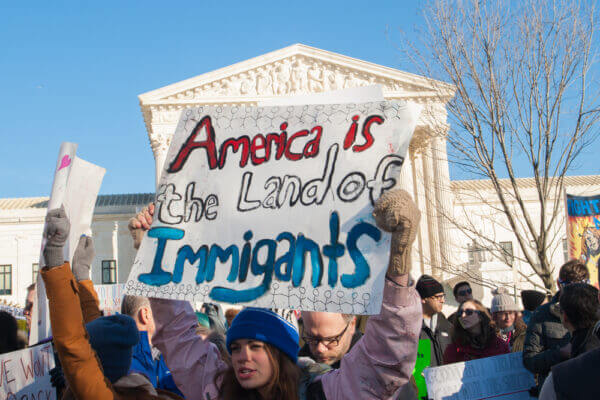 America is
the Land of
Immigants
WON'T